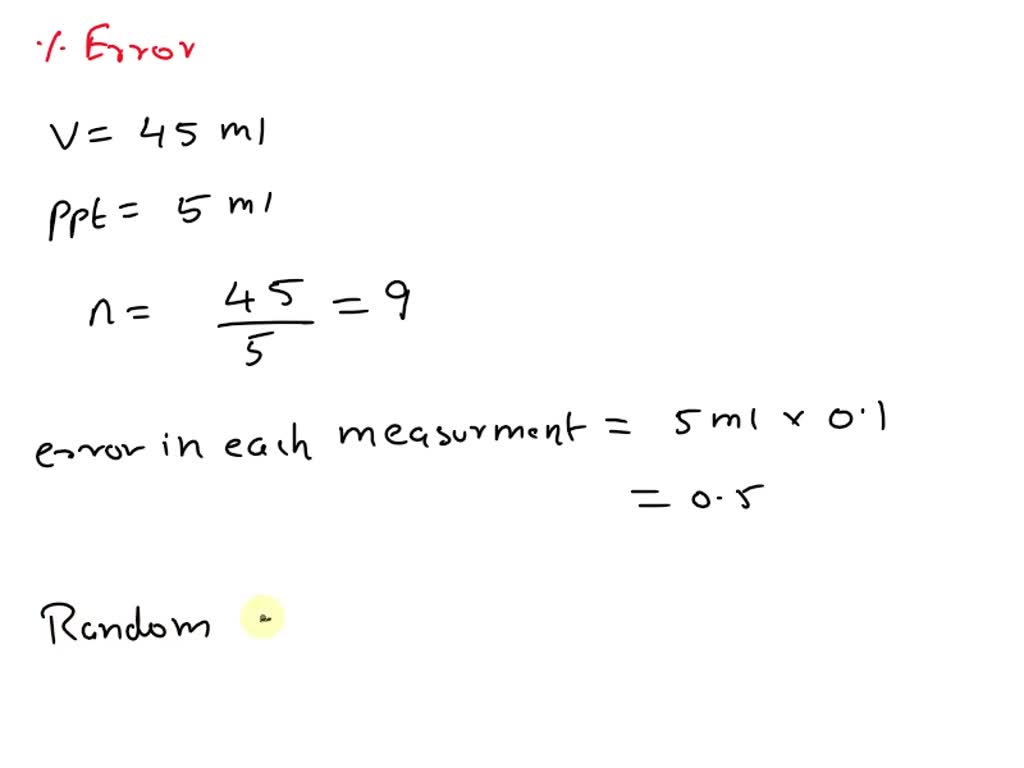 % Error
V = 45 ml
ppt = 5 ml
n = 45/5 = 9
error in each measurment = 5 ml x 0.1
= 0.5
Random